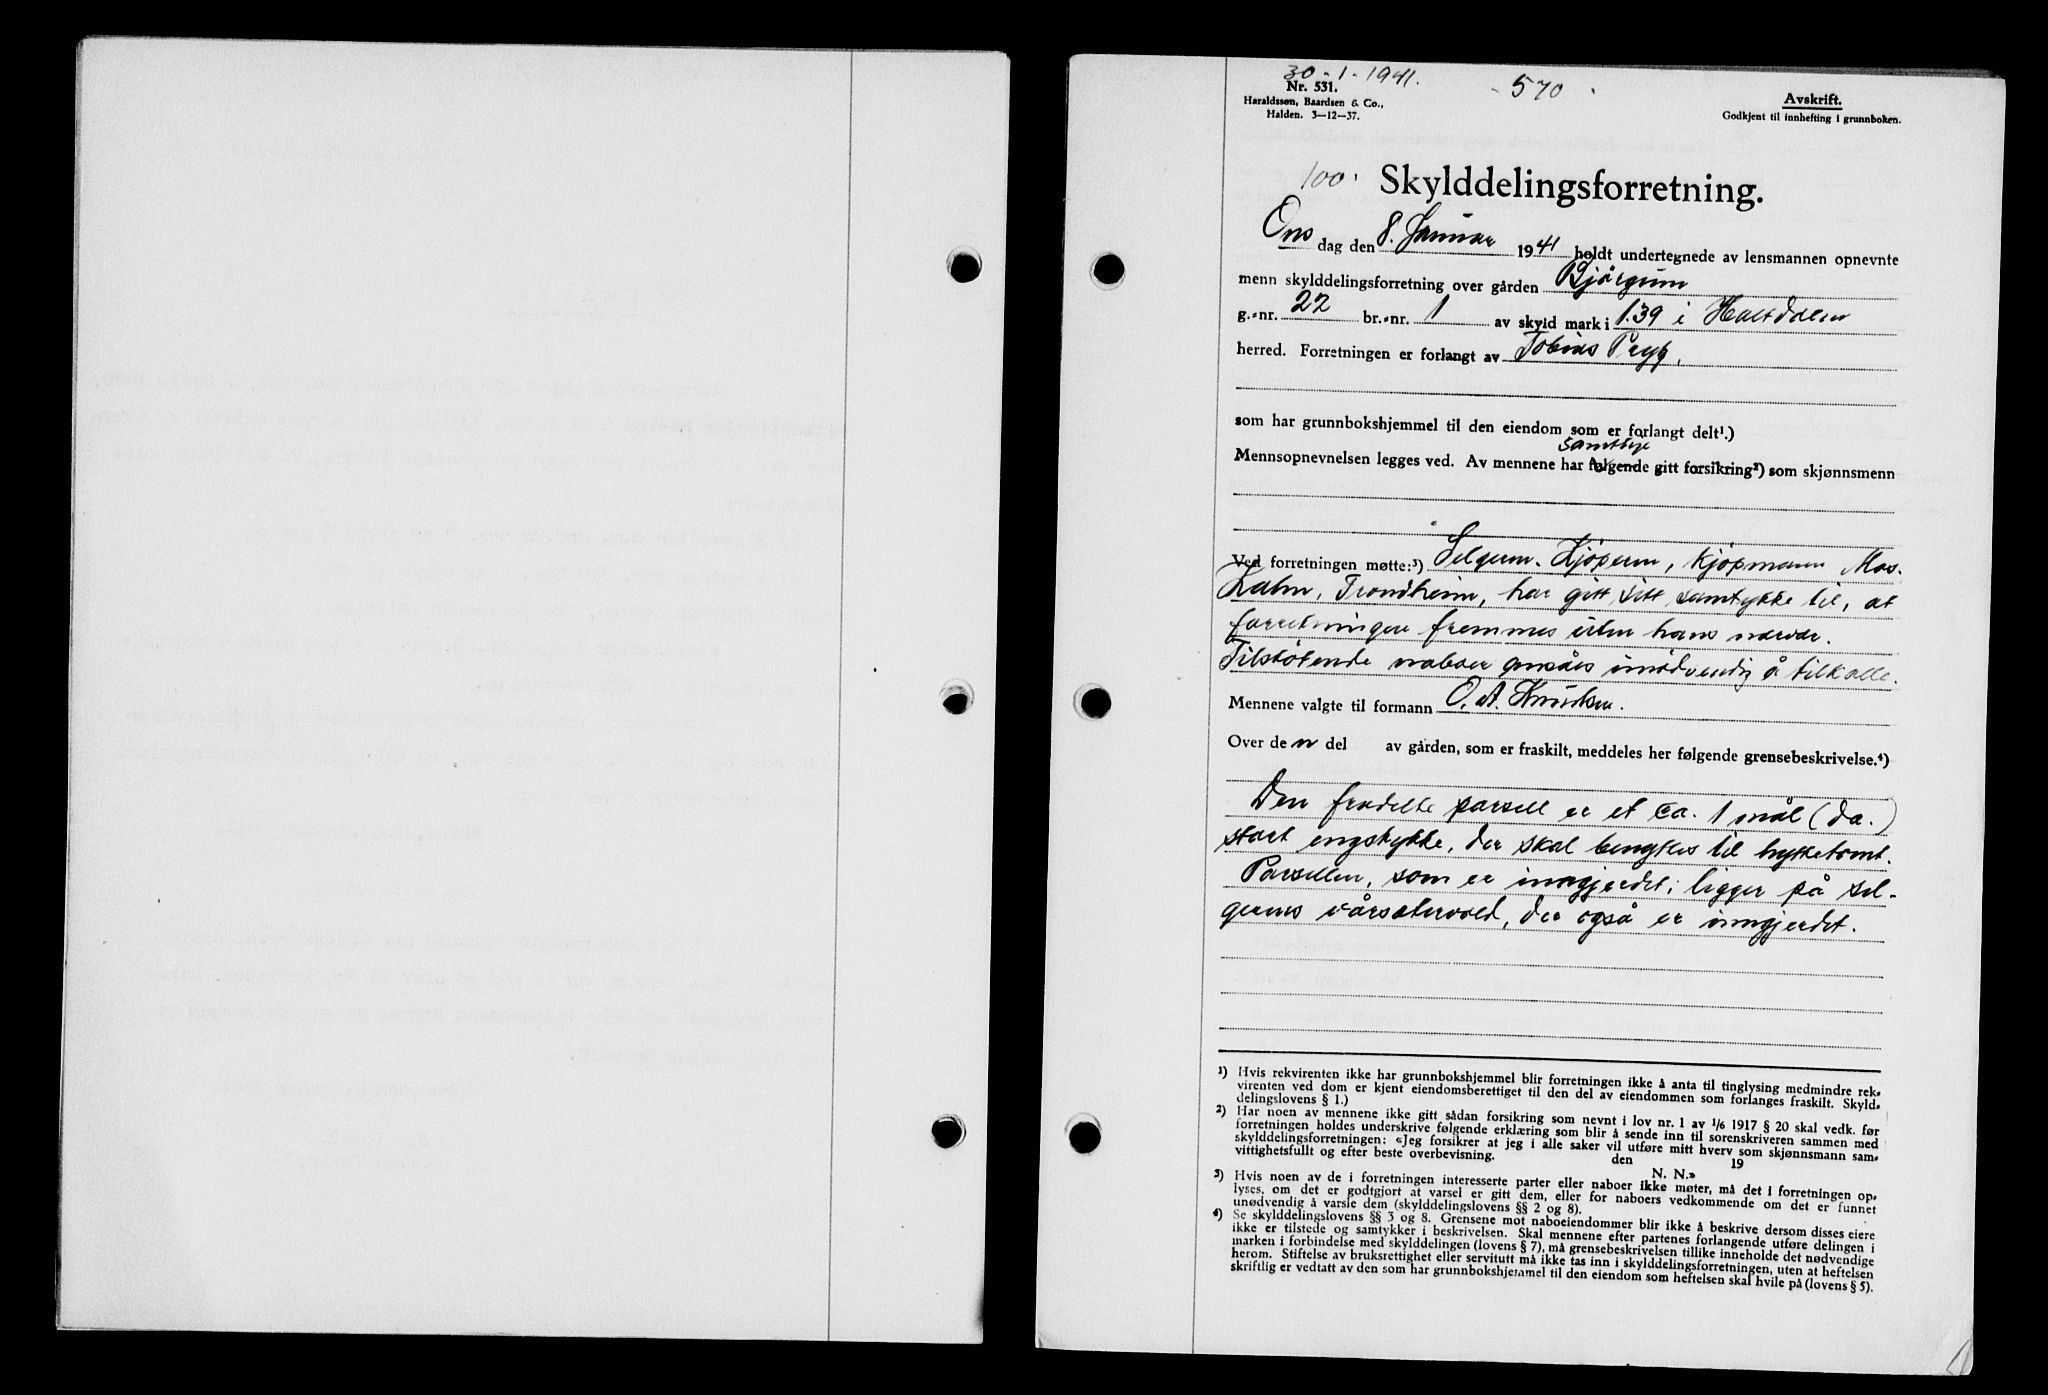 30-1-1941.
- 570 -
Nr. 531.
Haraldssøn, Baardsen & Co.,
Halden. 3—12—37.
Avskrift.
Godkjent til innhefting i grunnboken.
100.
Skylddelingsforretning.
Ons dag den 8. Januar 1941 holdt undertegnede av lensmannen opnevnte
menn skylddelingsforretning over gården Bjørgum
g.-nr. 22 br.-nr. 1 av skyld mark i 1.39 i Haltdalen
herred. Forretningen er forlangt av Tobias
som har grunnbokshjemmel til den eiendom som er forlangt delt¹.)
samtlige
Mennsopnevnelsen legges ved. Av mennene har følgende gitt forsikring²) som skjønnsmenn
Ved forretningen møtte:³) Selgeren. Kjøperen, kjøpmann
Trondheim, har gitt sitt samtykke til, at
forretningen fremmes uten hans nærvær.
Tilstøtende naboer ansåes unødvendig å tilkalle.
Mennene valgte til formann O. A. Knudsen.
Over de n del av gården, som er fraskilt, meddeles her følgende grensebeskrivelse.⁴)
Den fradelte parsell er et ca. 1 mål (da.)
stort engstykke, der skal benyttes til hyttetomt.
Parsellen, som er inngjerdet, ligger på sel-
gerens vårsætervold, der også er inngjerdet.
¹) Hvis rekvirenten ikke har grunnbokshjemmel blir forretningen ikke å anta til tinglysing medmindre rek-
virenten ved dom er kjent eiendomsberettiget til den del av eiendommen som forlanges fraskilt. Skyld-
delingslovens § 1.)
²) Har noen av mennene ikke gitt sådan forsikring som nevnt i lov nr. 1 av 1/6 1917 § 20 skal vedk. før
forretningen holdes underskrive følgende erklæring som blir å sende inn til sorenskriveren sammen med
skylddelingsforretningen: «Jeg forsikrer at jeg i alle saker vil utføre mitt hverv som skjønnsmann sam-
vittighetsfullt og efter beste overbevisning. den 19
N. N.»
³) Hvis noen av de i forretningen interesserte parter eller naboer ikke møter, må det i forretningen op-
lyses, om det er godtgjort at varsel er gitt dem, eller for naboers vedkommende om det er funnet
unødvendig å varsle dem (skylddelingslovens §§ 2 og 8).
⁴) Se skylddelingslovens §§ 3 og 8. Grensene mot naboeiendommer blir ikke å beskrive dersom disses eiere
ikke er tilstede og samtykker i beskrivelsen. Skal mennene efter partenes forlangende utføre delingen i
marken i forbindelse med skylddelingen (lovens § 7), må grensebeskrivelsen tillike inneholde det nødvendige
herom. Stiftelse av bruksrettighet eller servitutt må ikke tas inn i skylddelingsforretningen, uten at heftelsen
skriftlig er vedtatt av den som har grunnbokshjemmel til den eiendom som heftelsen skal hvile på (lovens § 5).